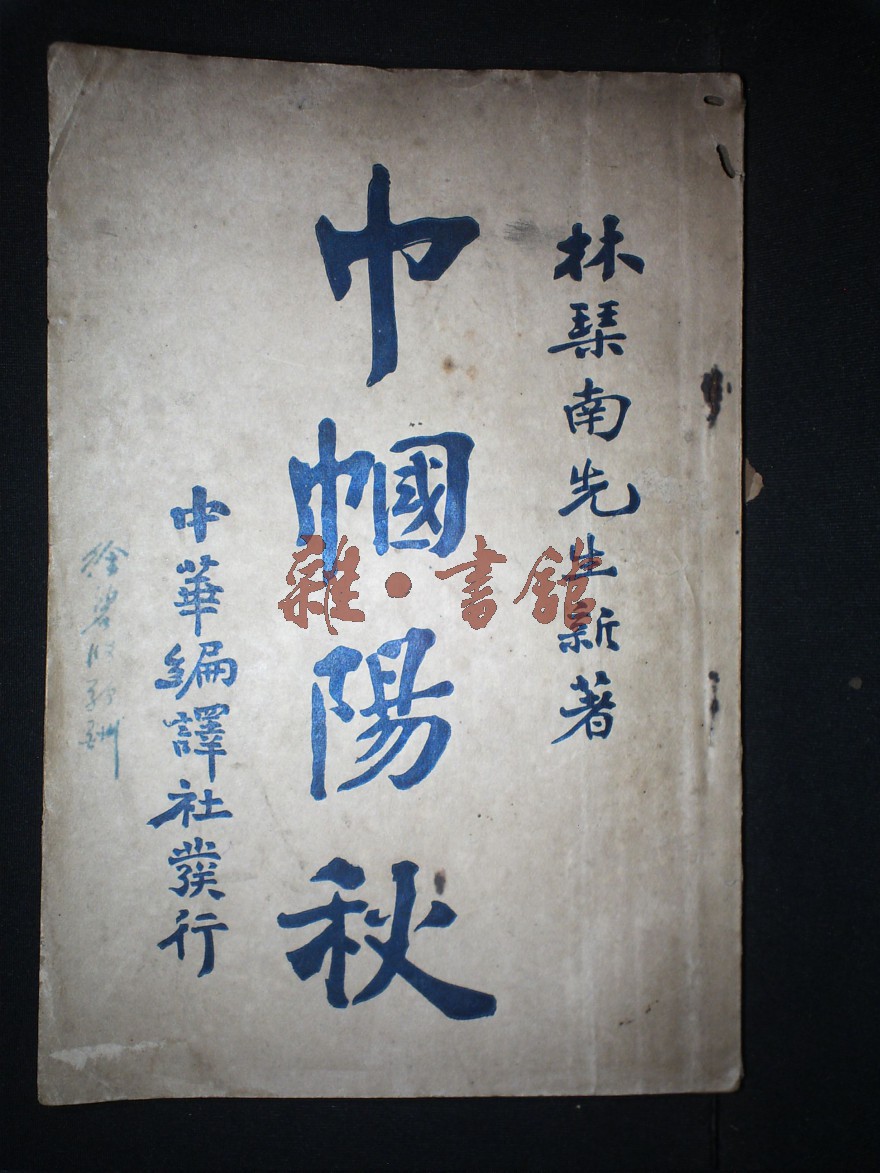 林琴南先生新著
巾幗陽秋
中華編譯社發行
雜·書館